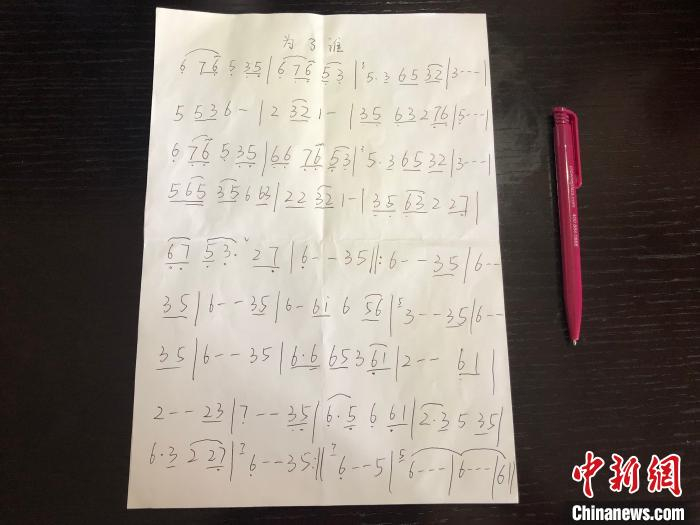 为了谁
6 76 5 35 | 676 53 | 2 5·3 65 32 | 3--- |
5 536- | 2 321- | 35 63276 | 5--- |
6 76 5 35 | 66 76 53 | 2 5·3 65 32 | 3--- |
565 356 63 | 22 321- | 35 632 27 |
67 53· 27 | 6--35 ‖: 6--35 | 6--
35 | 6--35 | 6- 61 6 56 | 5 3--35 | 6--
35 | 6--35 | 6·6 65 3 61 | 2-- 61 |
2--23 | 7--35 | 6·5 6 61 | 2·3 5 35 |
6·3 2 27 | 7 6--35 :‖ 7 6--5 | 5 6--- | 6--- | 6 ‖
中新网
Chinanews.com